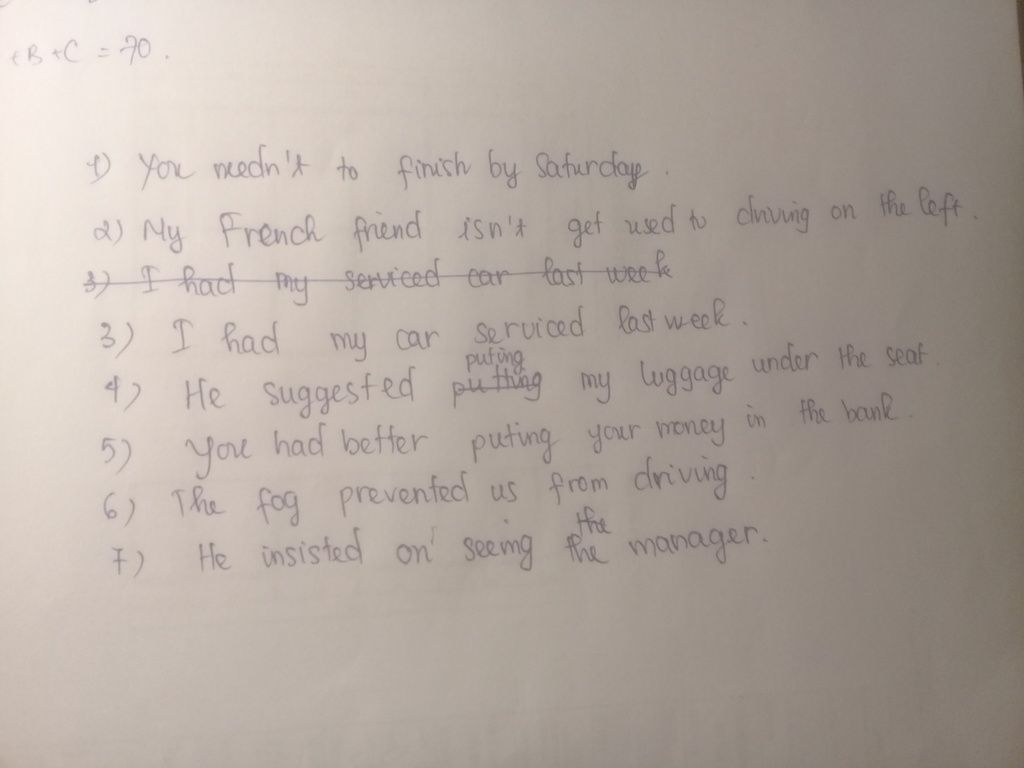 +B+C = 70.
1) You needn't to finish by Saturday.
2) My French friend isn't get used to driving on the left.
3) I had my serviced car last week
3) I had my car serviced last week.
puting
4) He suggested putting my luggage under the seat.
5) You had better puting your money in the bank.
6) The fog prevented us from driving.
the
7) He insisted on seeing the manager.